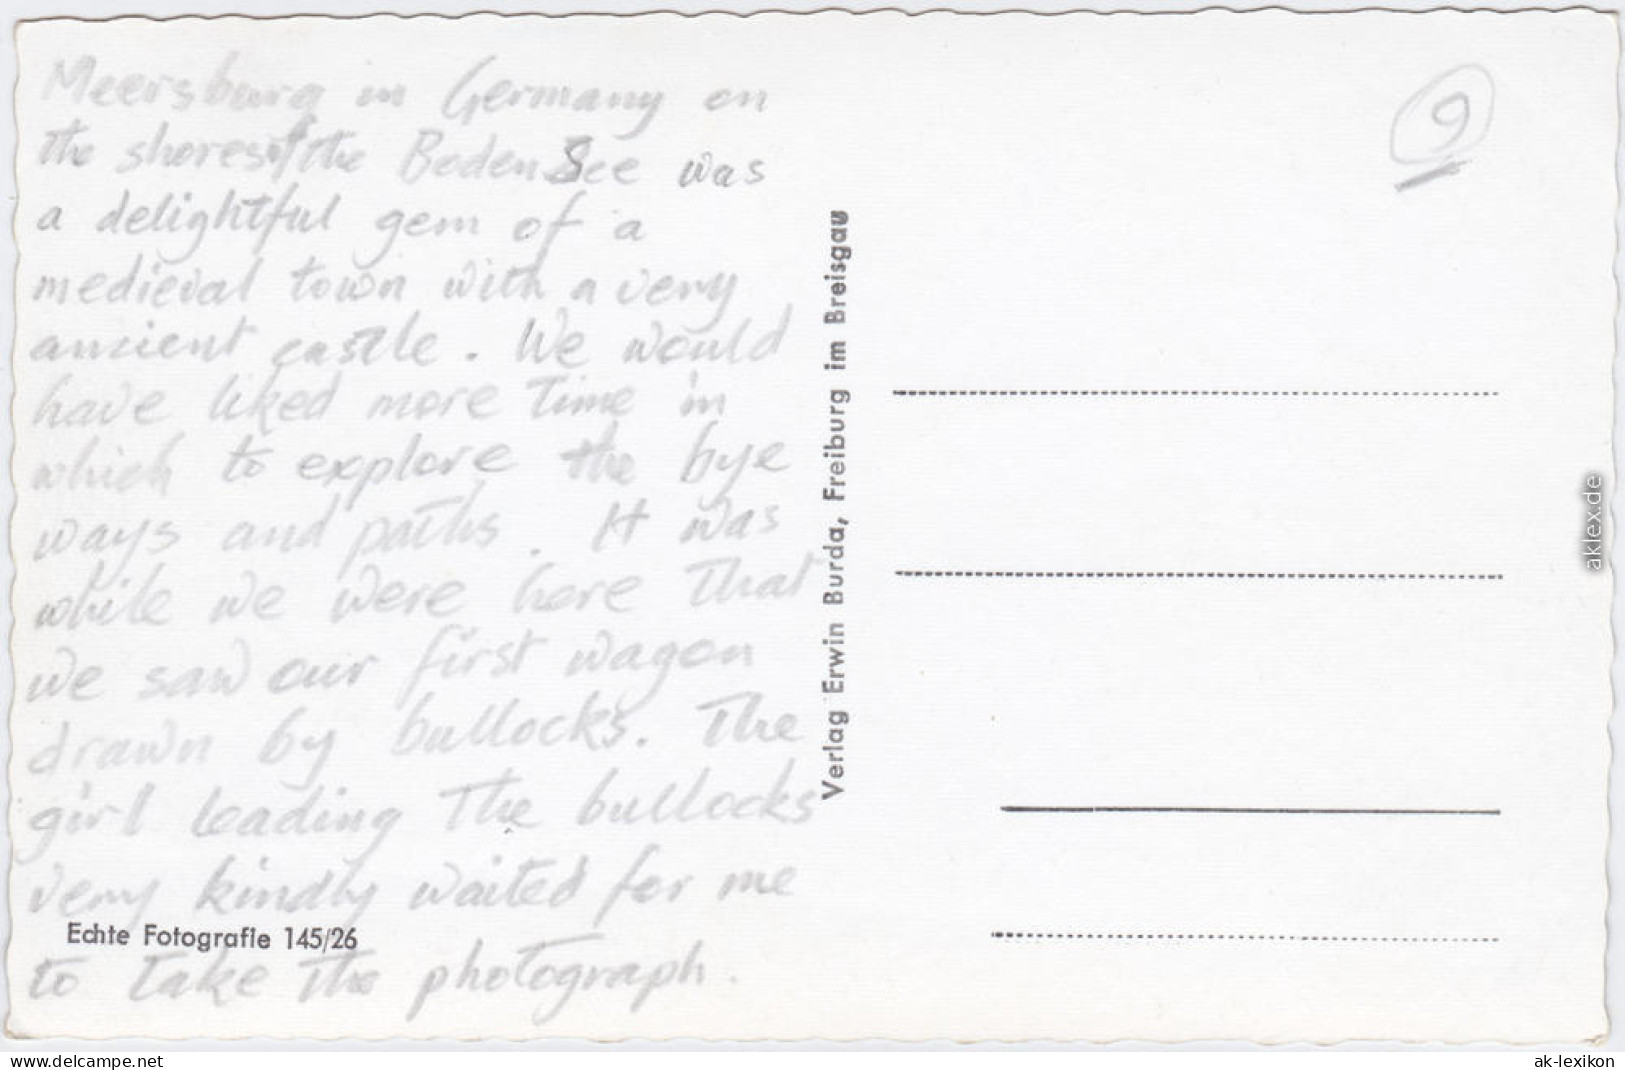 Meersburg in Germany on
the shores of the Boden See was
a delightful gem of a
medieval town with a very
ancient castle. We would
have liked more time in
which to explore the bye
ways and paths. It was
while we were here that
we saw our first wagon
drawn by bullocks. The
girl leading the bullocks
very kindly waited for me
to take the photograph.
Echte Fotografie 145/26
Verlag Erwin Burda, Freiburg im Breisgau
9
aklex.de
www.delcampe.net
ak-lexikon